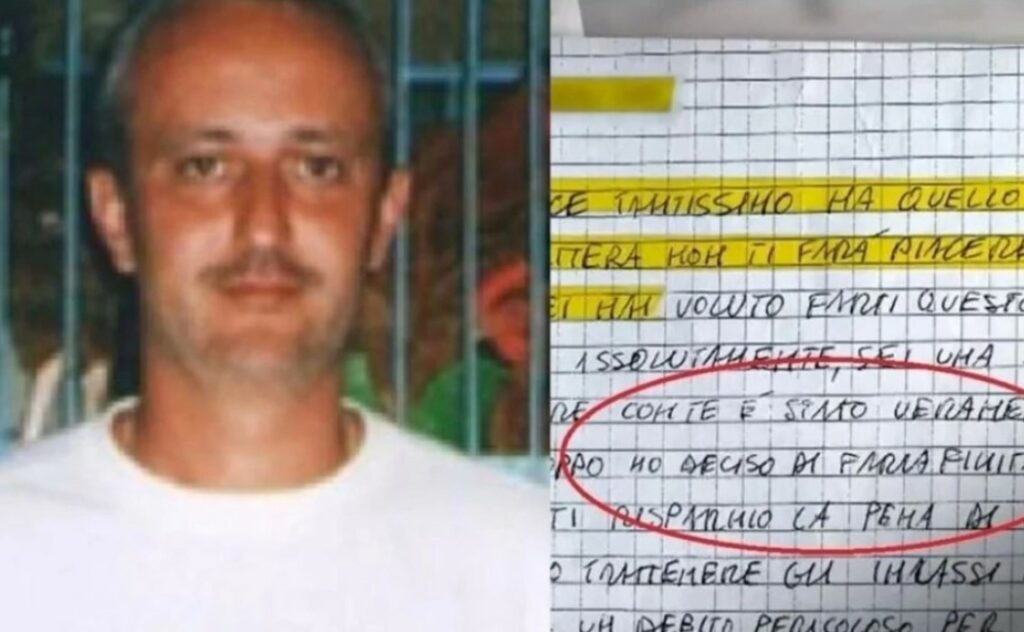 CE TANTISSIMO HA QUELLO
TTERA NON TI FARÀ PIACERE
EI HAI VOLUTO FARTI QUESTO
ASSOLUTAMENTE, SEI UNA
RE CONTE É SIMO VERAME
PPO HO DECISO DI FARLA FINITA
TI RISPARMIO LA PENA DI
O TRATTENERE GLI INCASSI
UN DEBITO PERICOLOSO PER